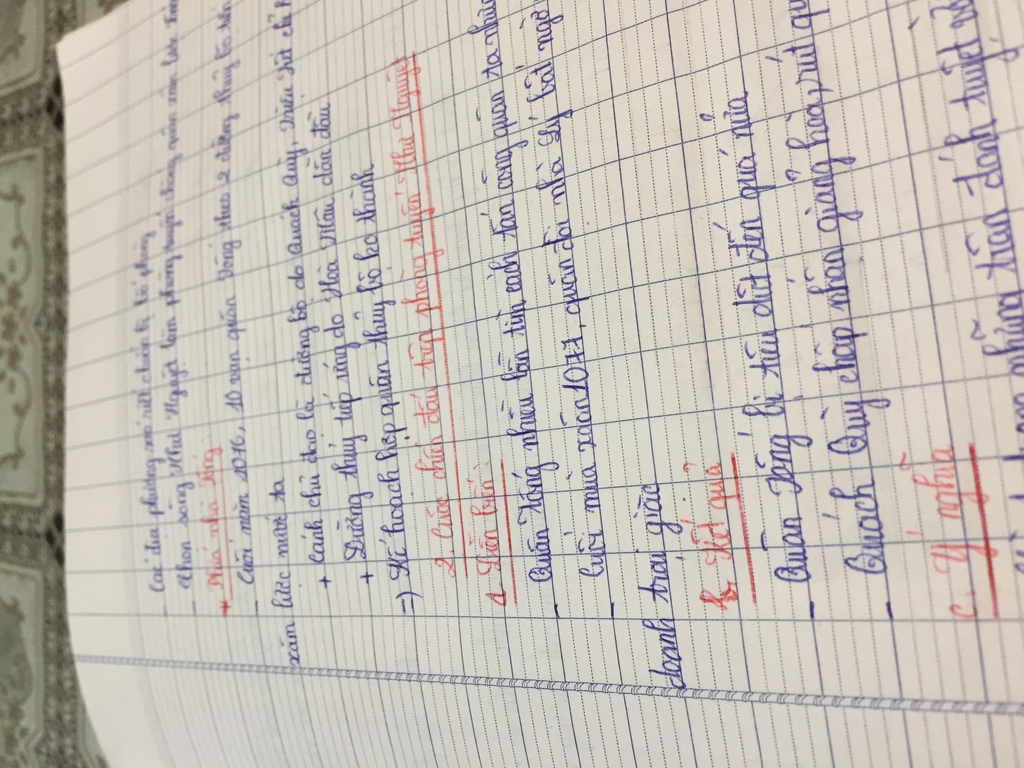 Các địa phương ráo riết chuẩn bị bố phòng
- Chọn sông Như Nguyệt làm phòng tuyến
+ Phía nhà Tống
- Cuối năm 1076, 10 vạn quân Tống theo 2 đường thủy bộ tiến
xâm lược nước ta
+ Cánh chủ đạo là đường bộ do Quách Quỳ, Triệu Tiết chỉ
+ Đường thủy tiếp ứng do Hòa Mâu dẫn đầu
=) Kế hoạch hợp quân thủy bộ ko thành
2. Cuộc chiến đấu trên phòng tuyến Như Nguyệt
a. Diễn biến:
- Quân Tống nhiều lần tìm cách tấn công quân ta
- Cuối mùa xuân 1077, quân đội nhà Lý bất ngờ
đánh trại giặc
b. Kết quả
- Quân Tống bị tiêu diệt đến quá nửa
- Quách Quỳ chấp nhận giảng hòa, rút
c. Ý nghĩa
những trận đánh tuyệt